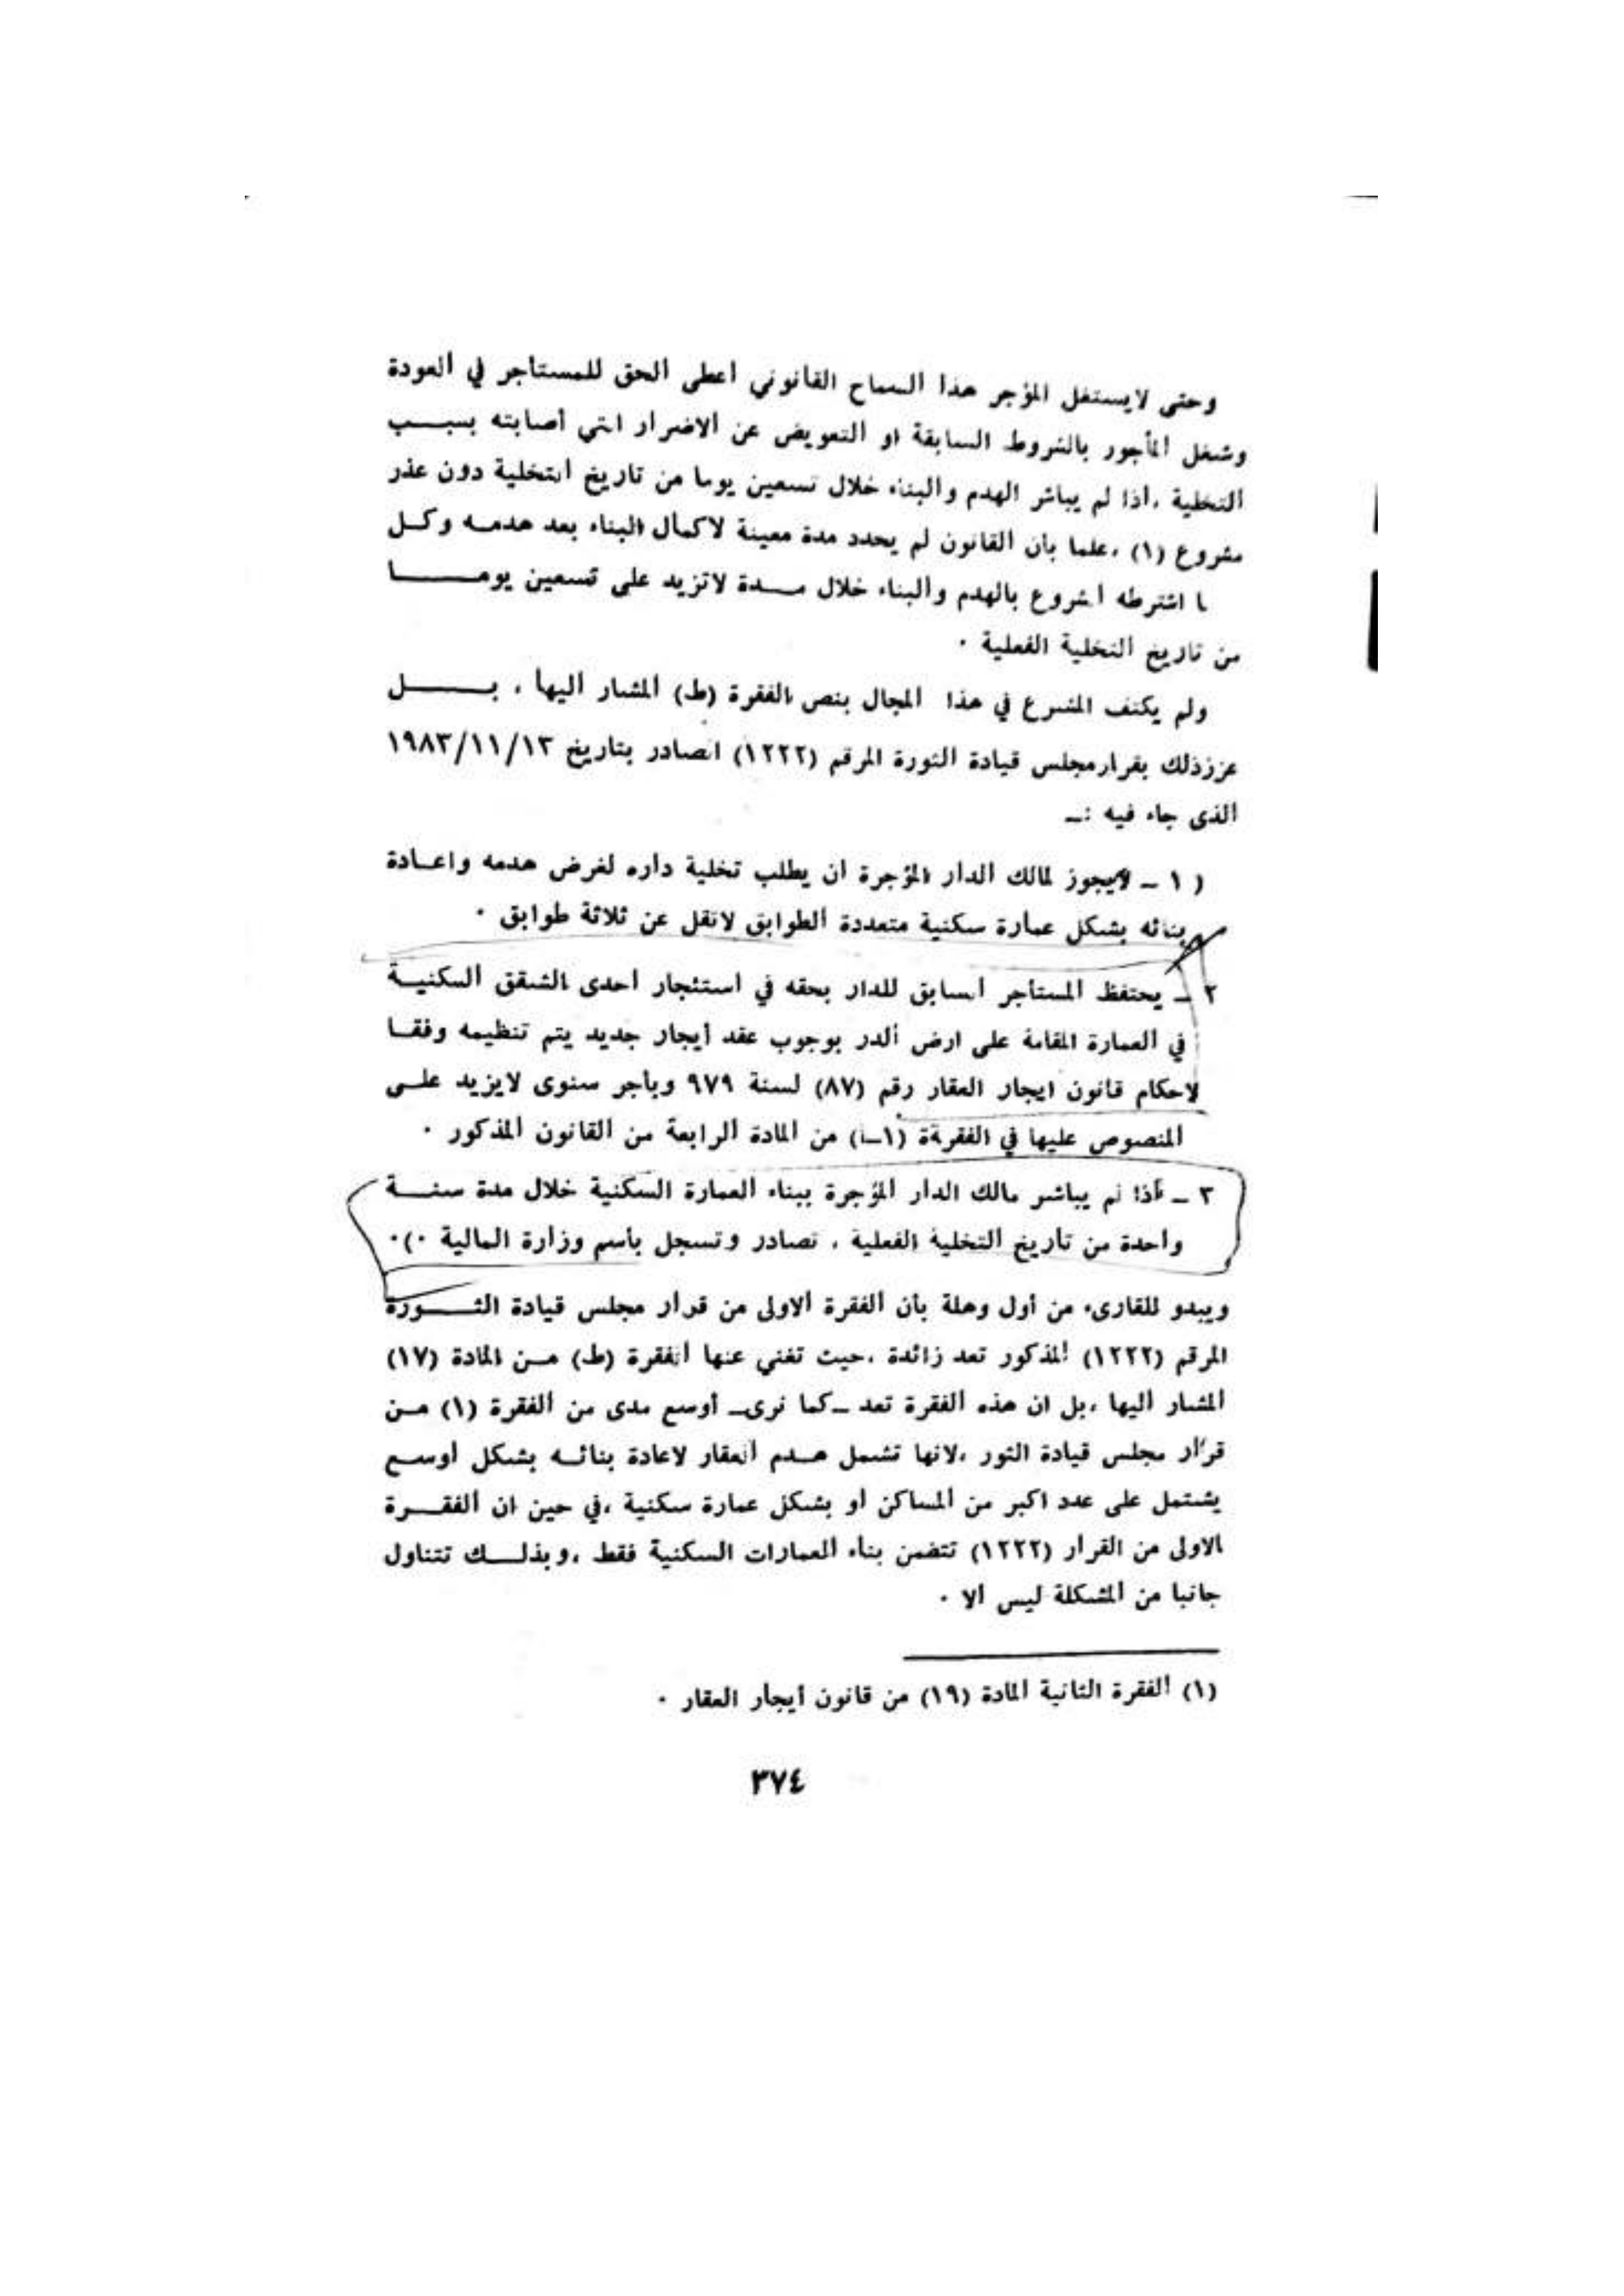 وحتى لايستغل المؤجر هذا السماح القانوني أعطى الحق للمستأجر في العودة
وشغل المأجور بالشروط السابقة او التعويض عن الاضرار التي أصابته بسبب
التخلية ، اذا لم يباشر الهدم والبناء خلال تسعين يوما من تاريخ التخلية دون عذر
مشروع (١) ، علما بأن القانون لم يحدد مدة معينة لاكمال البناء بعد هدمه وكل
ما اشترطه الشروع بالهدم والبناء خلال مدة لاتزيد على تسعين يوما
من تاريخ التخلية الفعلية ٠
ولم يكتف المشرع في هذا المجال بنص الفقرة (ط) المشار اليها ، بل
عززذلك بقرارمجلس قيادة الثورة المرقم (١٢٢٢) الصادر بتاريخ ١٩٨٣/١١/١٣
الذى جاء فيه :ـ
( ١ ـ لايجوز لمالك الدار المؤجرة ان يطلب تخلية داره لغرض هدمه واعادة
بنائه بشكل عمارة سكنية متعددة الطوابق لاتقل عن ثلاثة طوابق ٠
٢ ـ يحتفظ المستأجر السابق للدار بحقه في استئجار أحدى الشقق السكنية
في العمارة المقامة على ارض الدر بوجوب عقد أيجار جديد يتم تنظيمه وفقا
لاحكام قانون ايجار العقار رقم (٨٧) لسنة ٩٧٩ وبأجر سنوى لايزيد على
المنصوص عليها في الفقرة (١ـأ) من المادة الرابعة من القانون المذكور ٠
٣ ـ أذا لم يباشر مالك الدار المؤجرة ببناء العمارة السكنية خلال مدة سنة
واحدة من تاريخ التخلية الفعلية ، تصادر وتسجل بأسم وزارة المالية ٠)٠
ويبدو للقارىء من أول وهلة بأن الفقرة الاولى من قرار مجلس قيادة الثورة
المرقم (١٢٢٢) المذكور تعد زائدة ،حيث تغني عنها الفقرة (ط) من المادة (١٧)
المشار اليها ،بل ان هذه الفقرة تعد ـكما نرىـ أوسع مدى من الفقرة (١) من
قرار مجلس قيادة الثور ،لانها تشمل هدم العقار لاعادة بنائه بشكل أوسع
يشتمل على عدد اكبر من المساكن او بشكل عمارة سكنية ،في حين ان الفقرة
الاولى من القرار (١٢٢٢) تتضمن بناء العمارات السكنية فقط ،وبذلك تتناول
جانبا من المشكلة ليس الا ٠
(١) الفقرة الثانية المادة (١٩) من قانون أيجار العقار ٠
٣٧٤